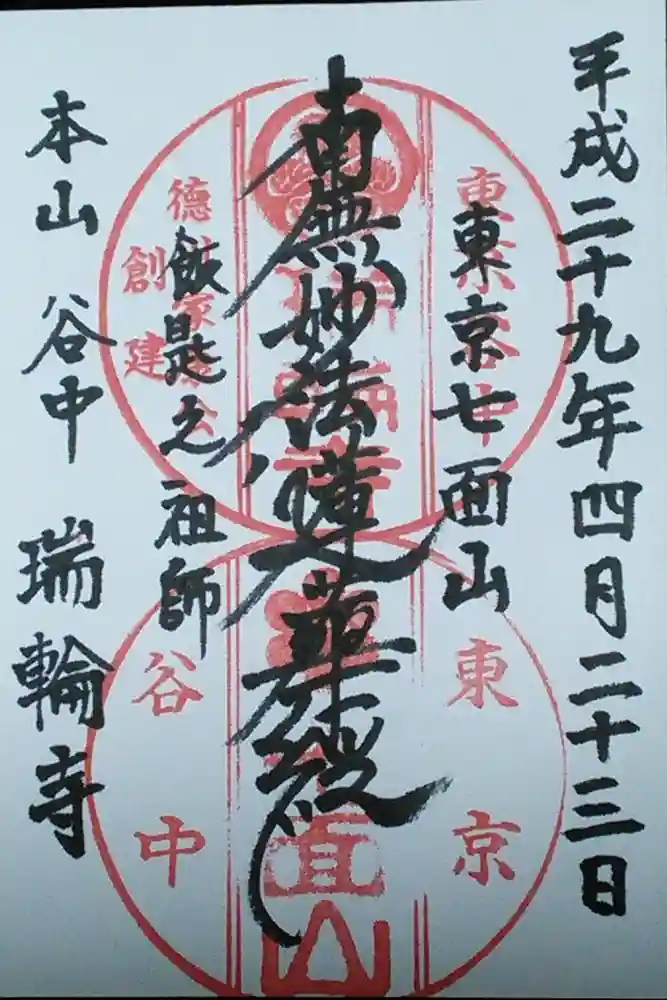 平成二十九年四月二十三日
東京七面山
南無妙法蓮華経
飯匙之祖師
本山 谷中 瑞輪寺
東京谷中
徳川家康公
創建
東京
谷中